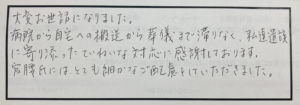 大変お世話になりました。
病院から自宅への搬送から葬儀まで滞りなく、私達遺族
に寄り添ったていねいな対応に感謝しております。
宮腰氏にはとても細かなご配慮をしていただきました。